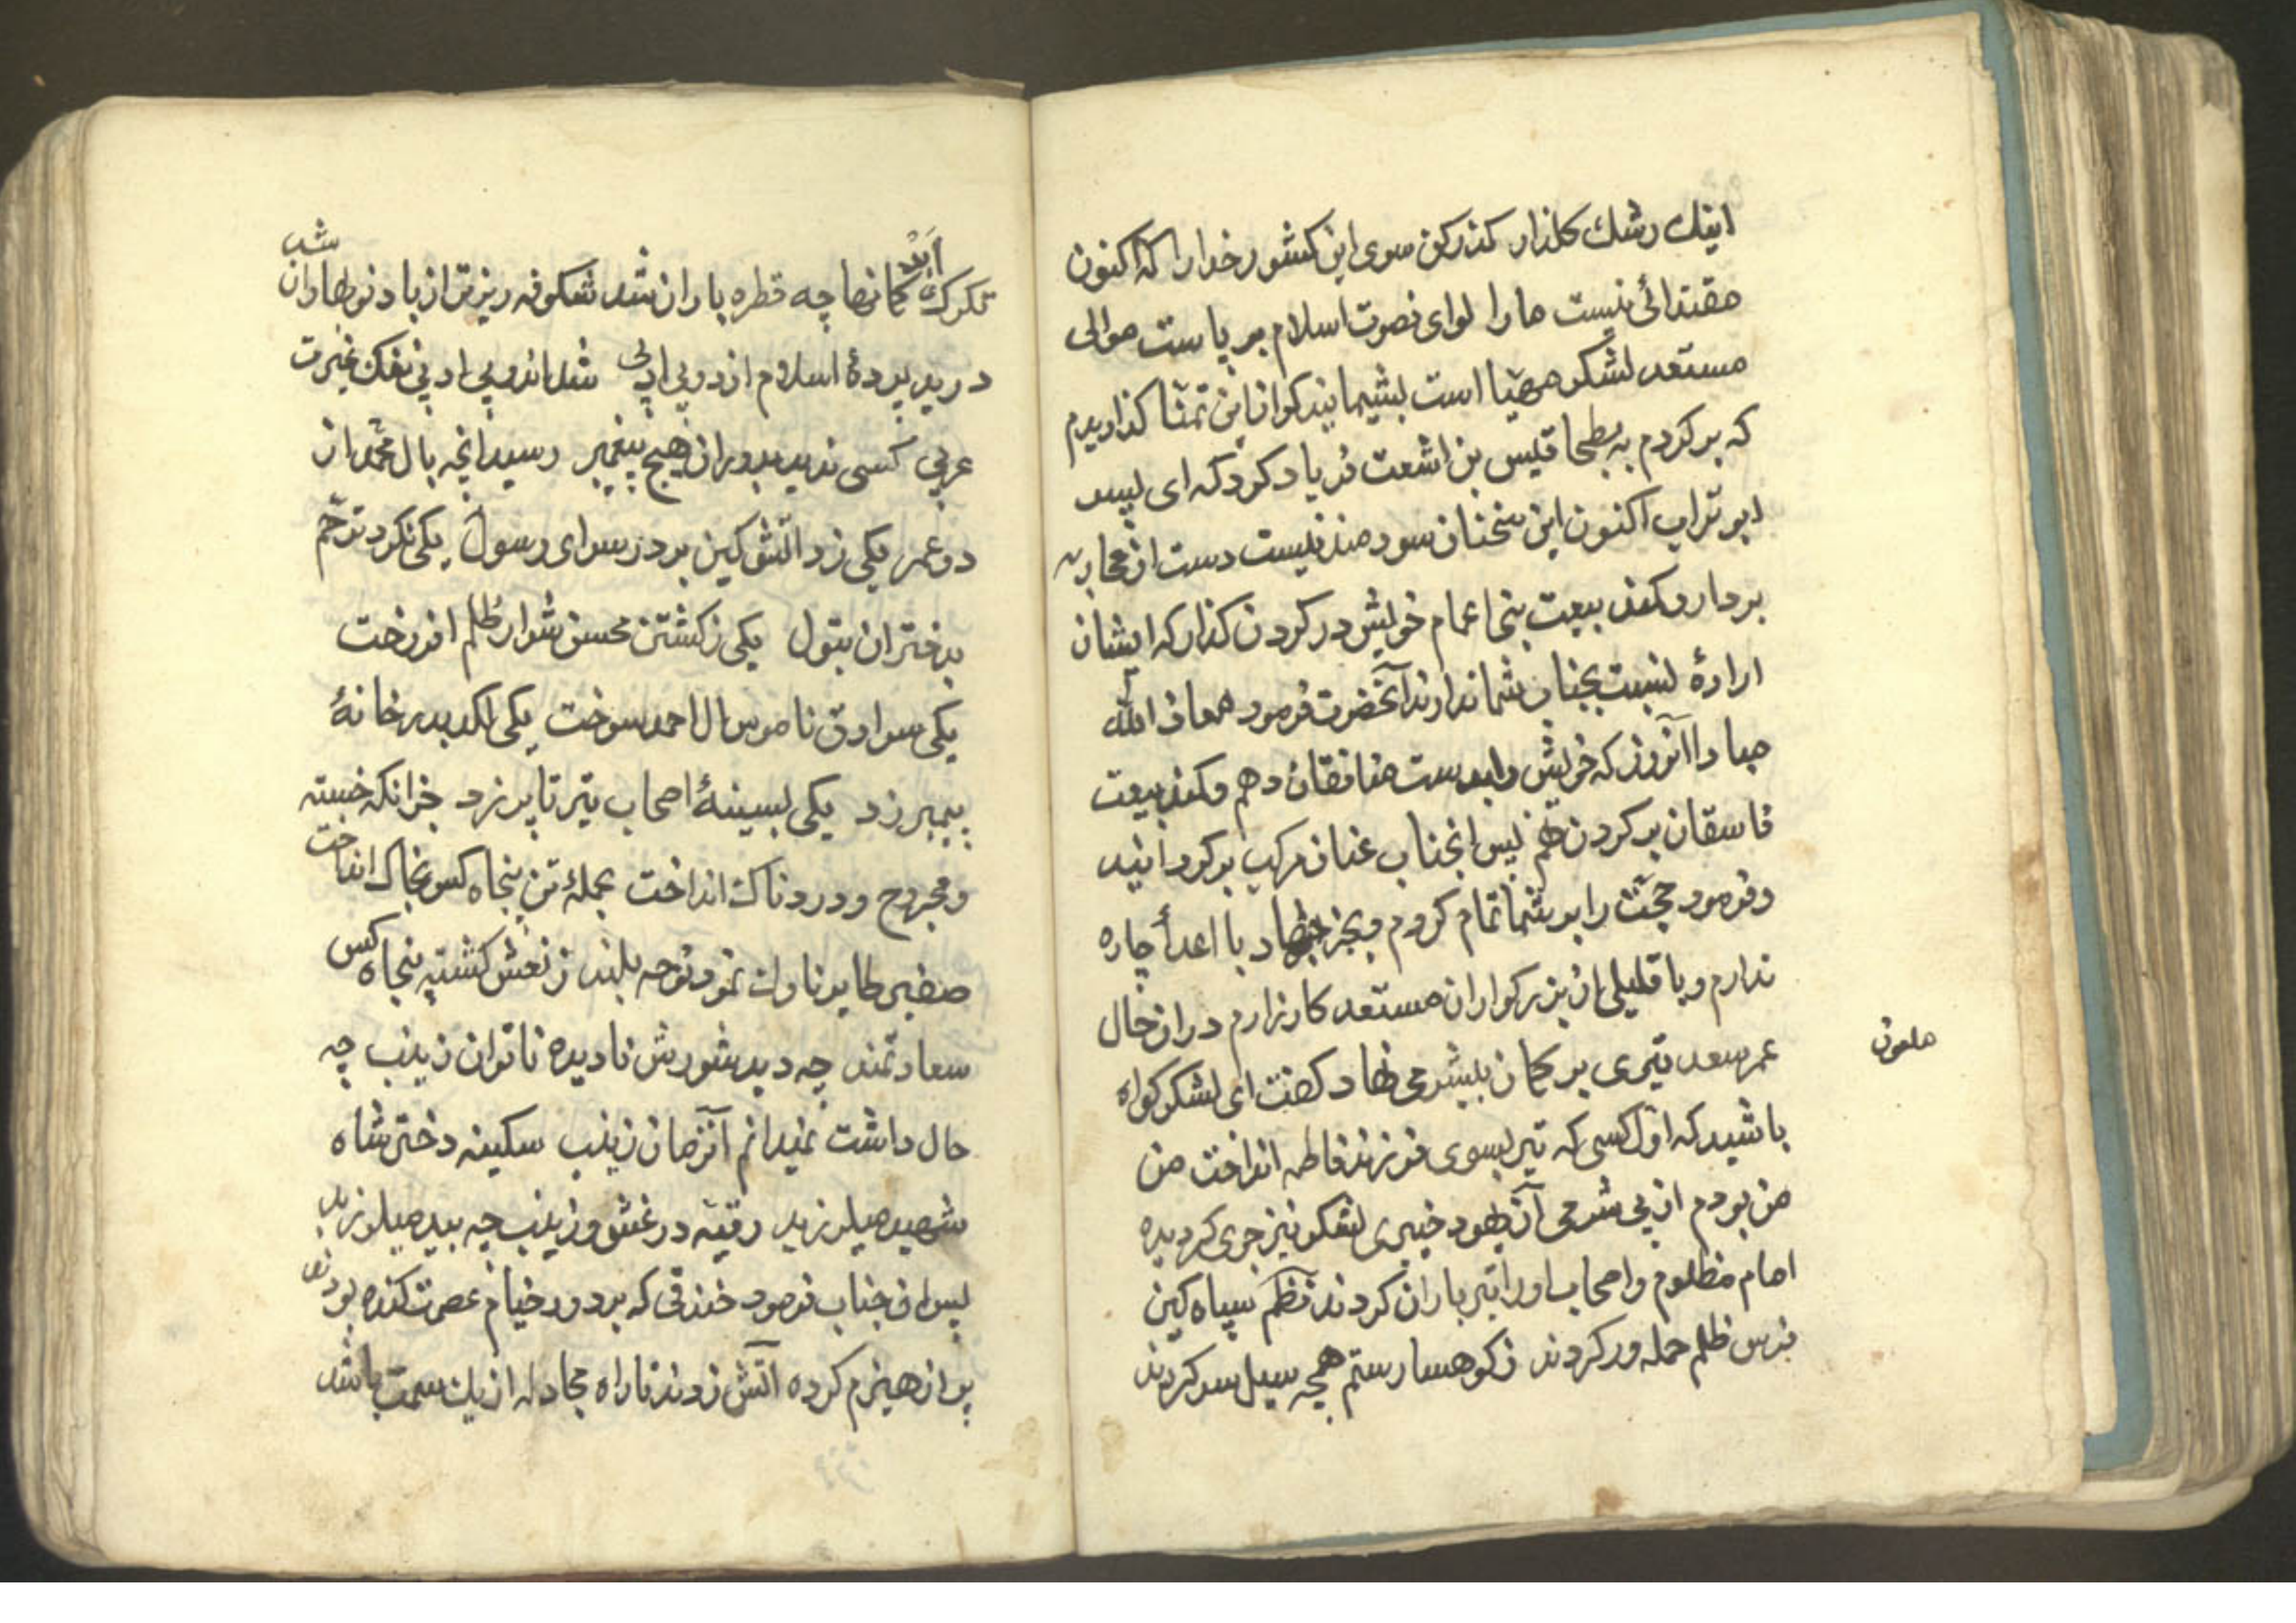 اینك رشك كلذار كذر كن سوی این كشور خدا را كه اكنون
مقتدائی نیست ما را لوای نصرت اسلام بر پاست موالی
مستعد لشكر مهیا است پشیمانید كر از این تمنا كذاریدم
كه بركردم به بطحا قیس بن اشعت فریاد كرد كه ای پسر
ابو تراب اكنون این سخنان سودمند نیست دست از محاربه
بردار و كمند بیعت بنی اعمام خویش در كردن كذار كه ایشان
ارادهٔ نسبت بجناب شما ندارند آنحضرت فرمود معاذ الله
مبادا آنروز كه خویش را بدست منافقان دهم و كمند بیعت
فاسقان بر كردن نهم پس انجناب عنان مركب بر كردانید
و فرمود حجت را بر شما تمام كردم و بجز جهاد با اعدأ چاره
ندارم و با قلیلی از بزركواران مستعد كارزارم در ان حال
عمر سعد تیری بر كمان بیشرمی نهاد كفت ای لشكر كواه
ملعون
باشید كه اول كسی كه تیر بسوی فرزند فاطمه انداخت من
من بودم از بی شرمی آن یهود خیبری لشكر نیز جری كردیده
امام مظلوم و اصحاب او را تیر باران كردند نظم سپاه كین
فرس ظلم حمله ور كردند ز كوهسار ستم همچه سیل سر كردند
تكرك كمانها چه قطره باران شد شكوفه ریز تر از باد نوبهاران شد
ابر
درید پردهٔ اسلام از دو بی ادبی شد اندو بی ادبی ننك غیرت
عربی كسی ندید بدوران هیچ پیغمبر رسید انچه بال محمد از
دو عمر یكی زد اتش كین بر در سرای رسول یكی نكرد ترحم
بدختران بتول یكی ز كشتن محسن شرار ظلم افروخت
یكی سرادق ناموس ال احمد سوخت یكی لكد بدر خانهٔ
پیمبر زد یكی بسینهٔ اصحاب تیر تا پر زد خرانكه خسته
و مجروح و دردناك انداخت بحملهٔ تن پنجاه كس بخاك انداخت
صفیر طایر ناوك نمود نوحه بلند ز نعش كشته پنجاه كس
سعادتمند چه دید شورش نادیده ناتوان زینب چه
حال داشت نمیدانم آنزمان زینب سكینه دختر شاه
شهید میلرزید رقیه در غش و زینب چه بید میلرزید
پس ان جناب فرمود خندقی كه بر دور خیام عصمت كنده بودند
پر از هیزم كرده اتش زدند تا راه مجادله از یك سمت باشد